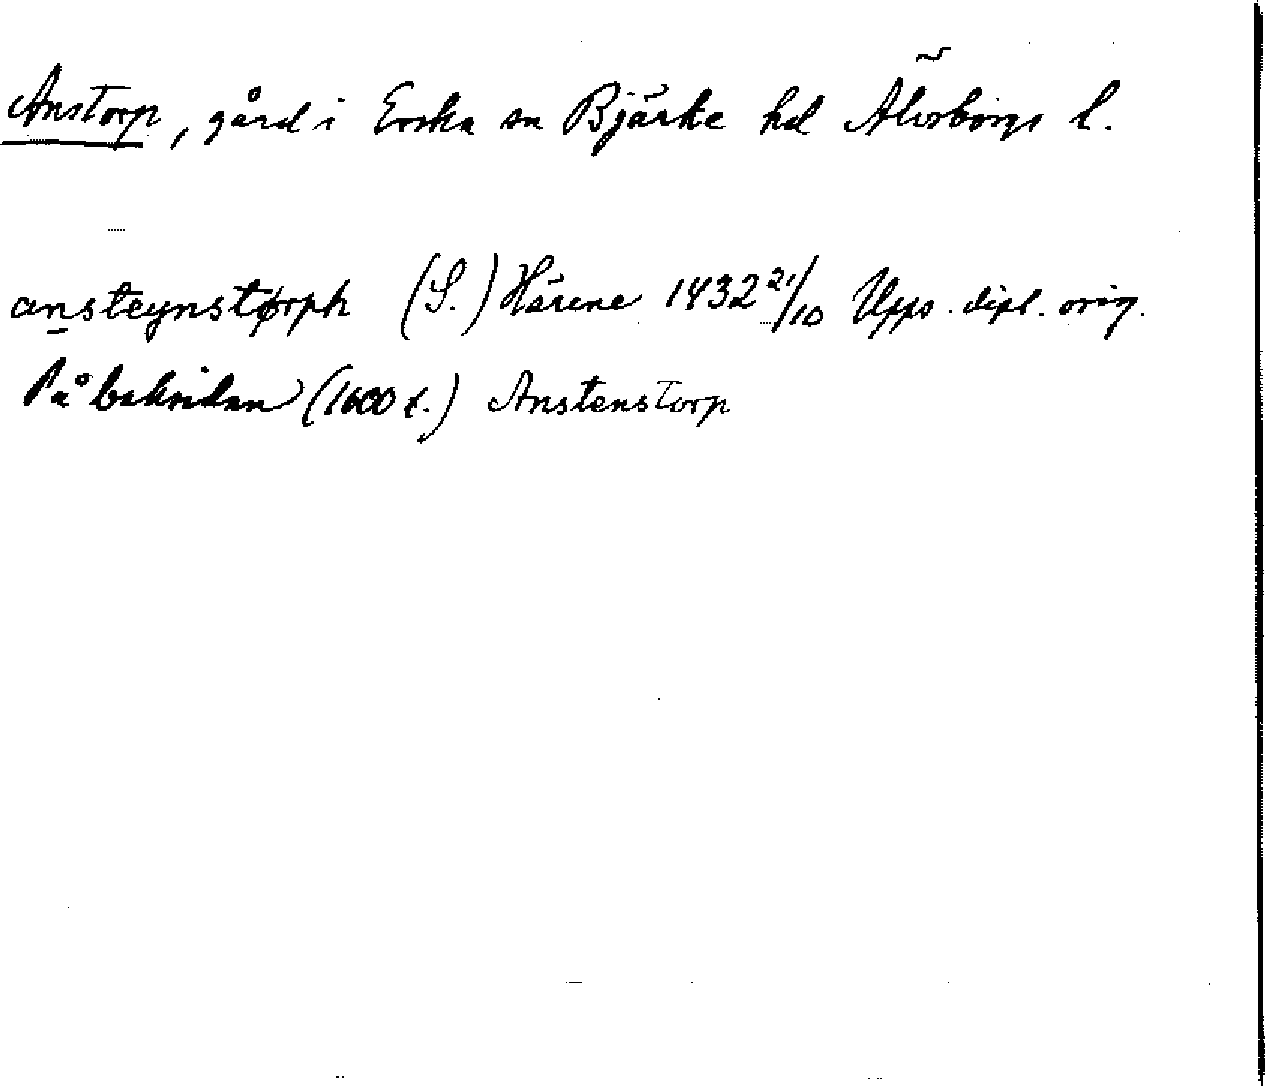 Anstorp, gård i Erska sn Bjärke hd Älvsborgs l.
ansteynstørph (S.) Härene 1432 21/10 Upps. dipl. orig.
På baksidan (1600 t.) Anstenstorp